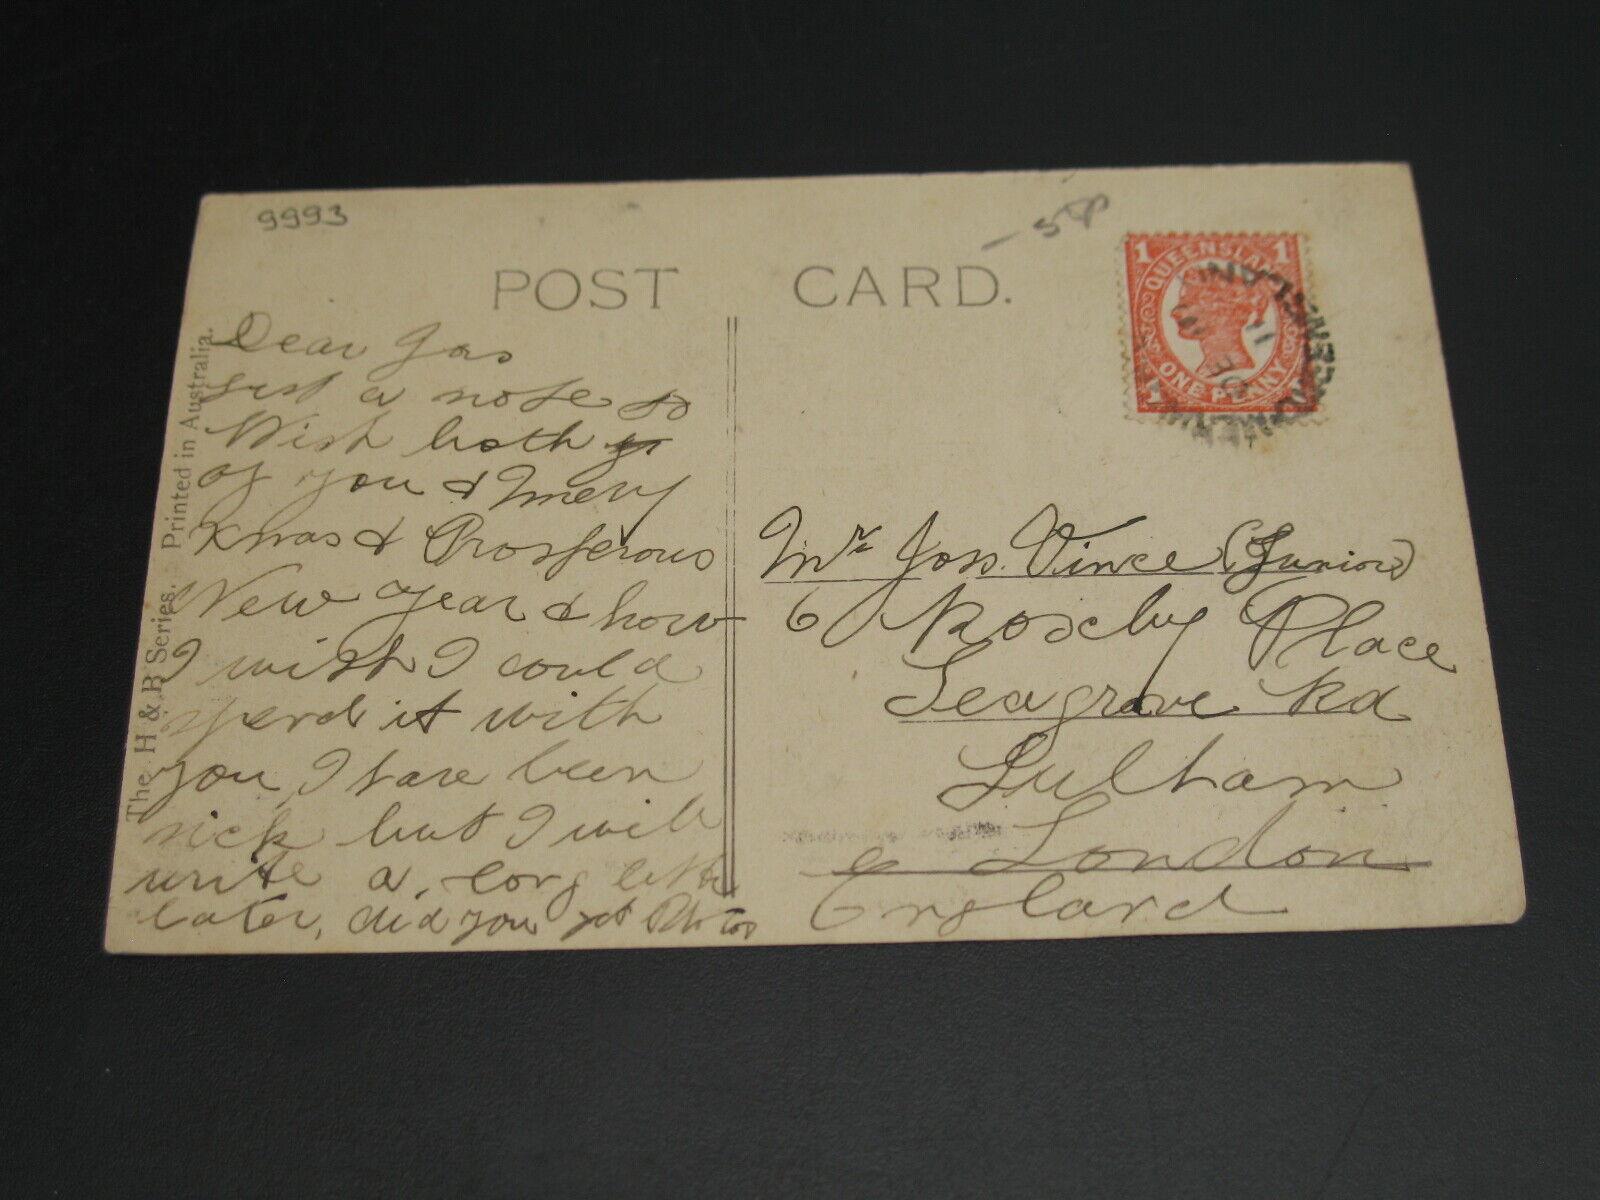 9993
POST CARD.
The H & B Series. Printed in Australia.
Dear Jos
Just a note to
Wish both
of you a Merry
Xmas & Prosperous
New Year & how
I wish I could
spend it with
you, I have been
sick, but I will
write a long letter
later, did you get
1 QUEENSLAND 1
ONE PENNY
1
Mr Jos. Vince (Junior)
6 Roseby Place
Seagrave Rd
Fulham
London
England